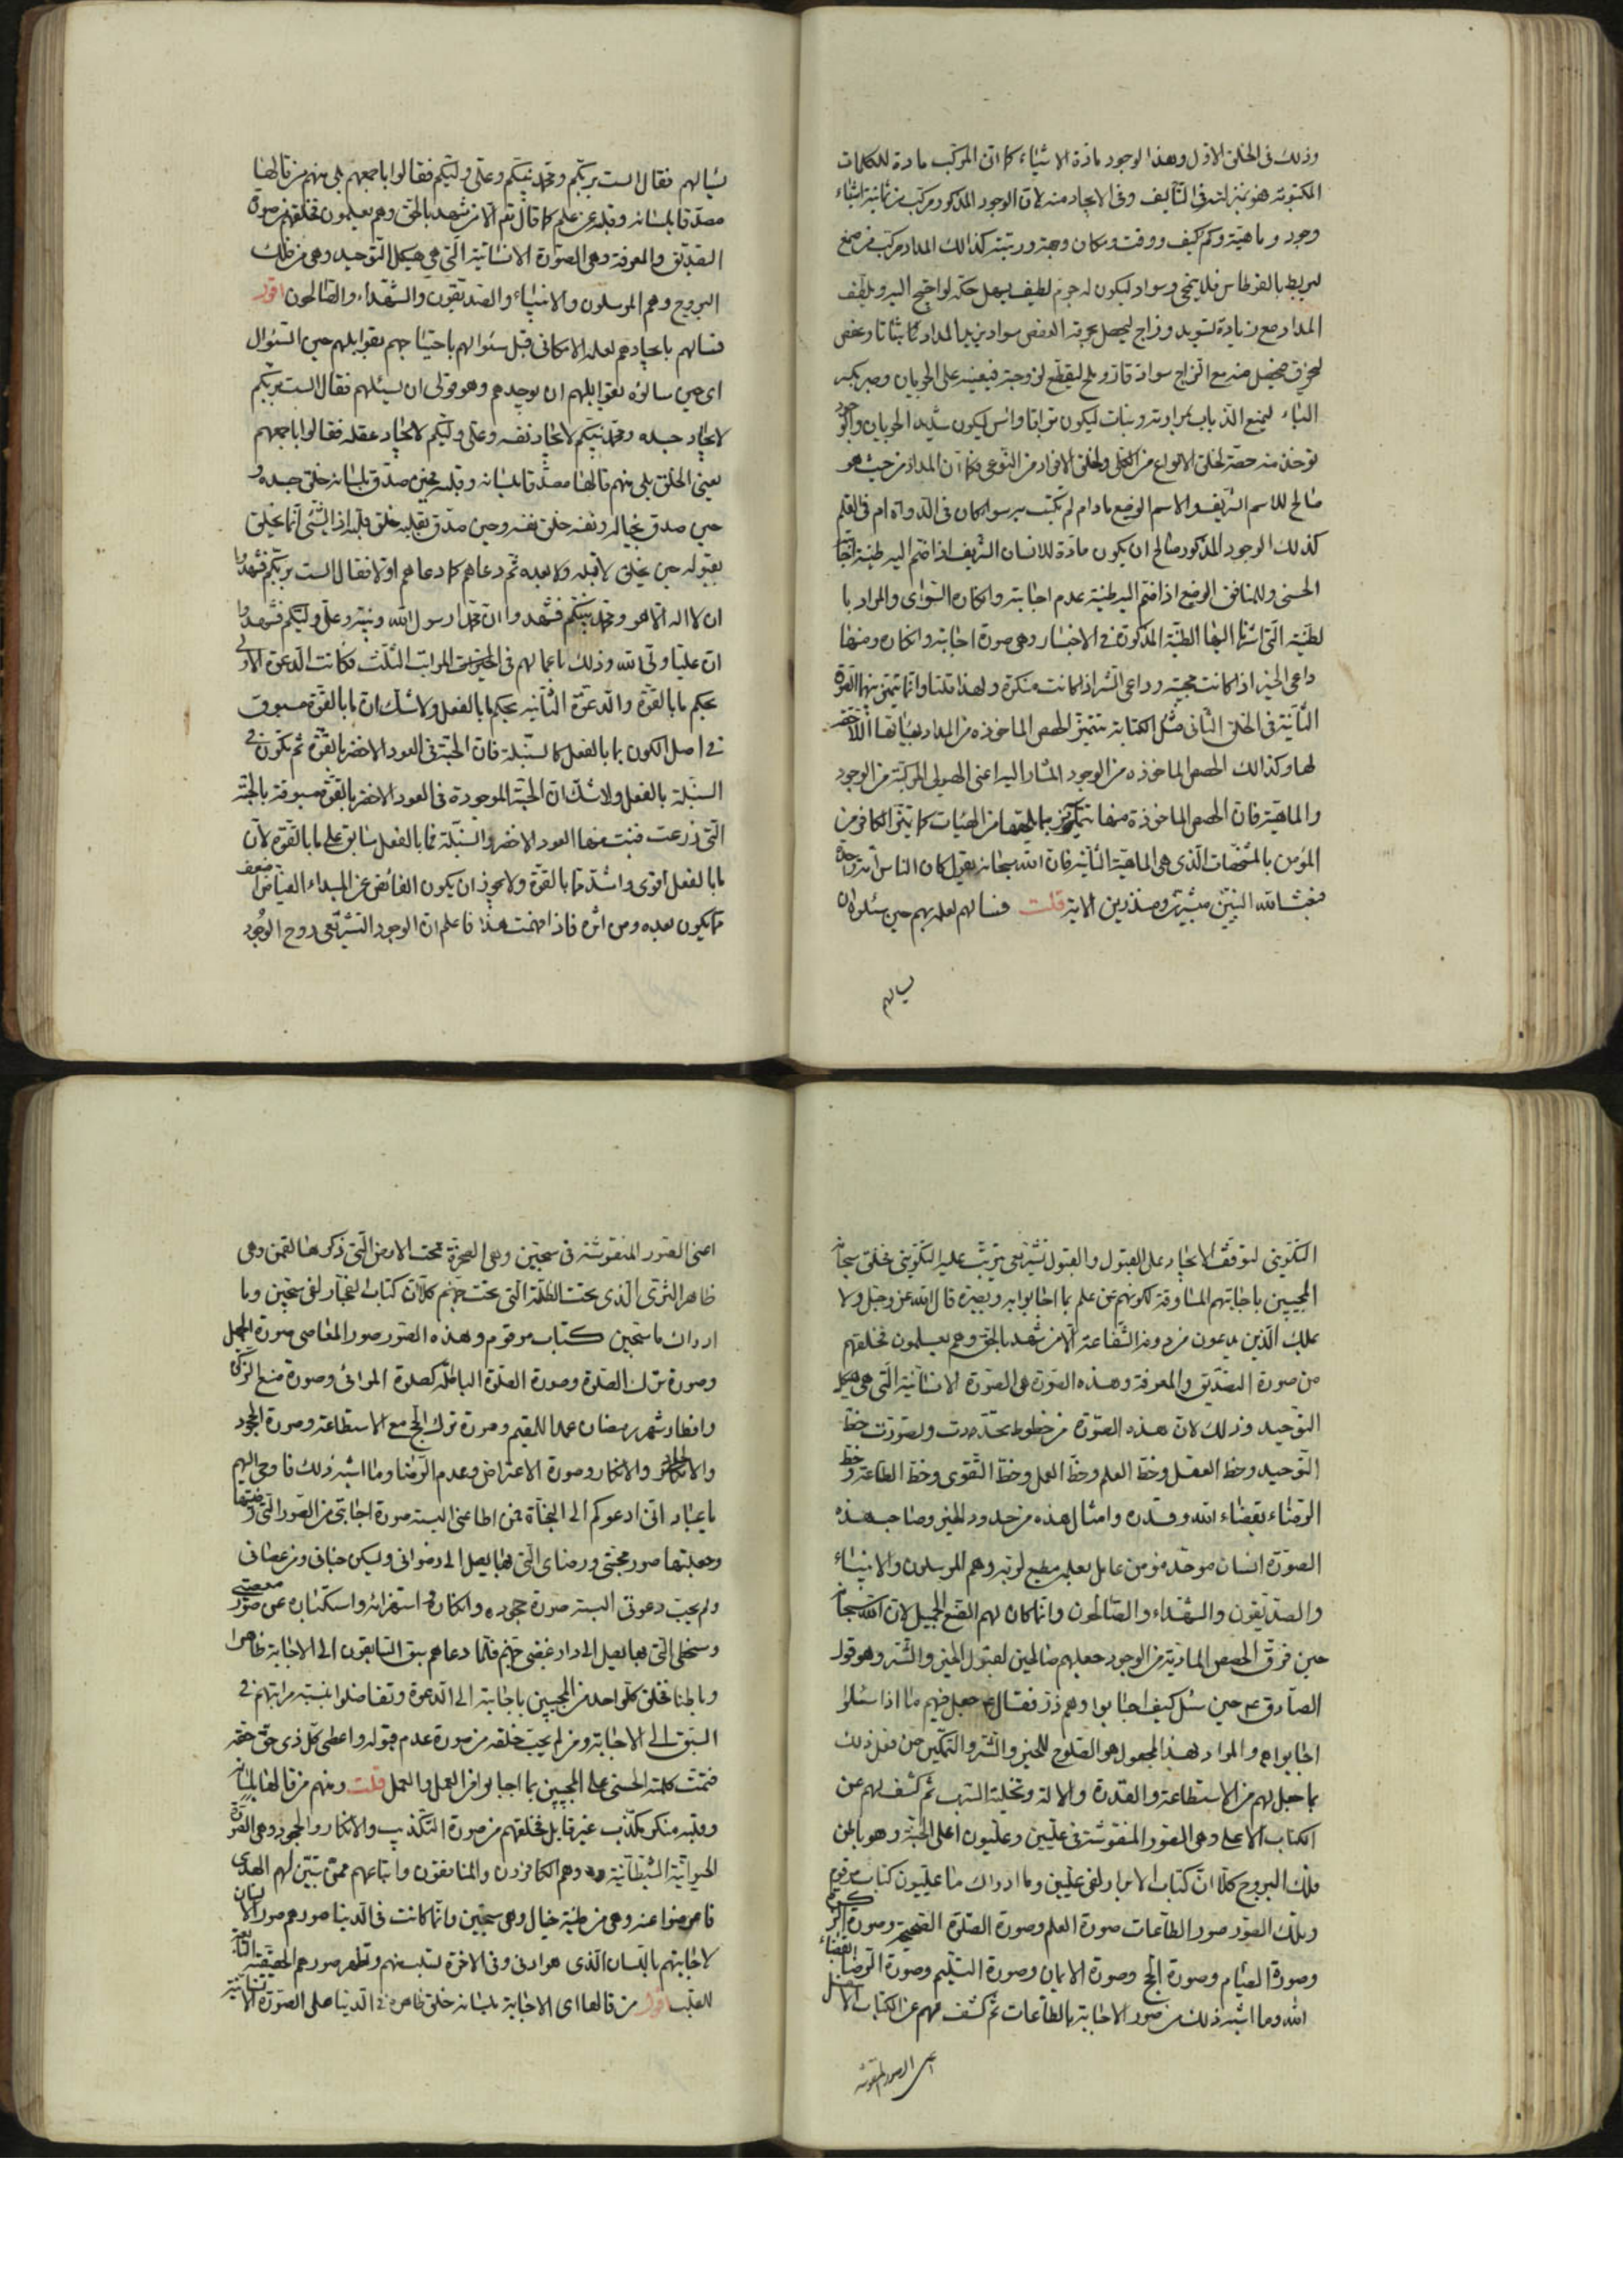 وذلك في الخلق الاول وهذا الوجود مادة الاشياء كما ان المركب مادة للكلمات
المكتوبة فهو بمنزلته في التأليف وفي الايجاد منه لان الوجود المذكور مركب من ثمانية اشياء
وجود وماهية وكم وكيف ووقت ومكان وجهة ورتبة كذلك المداد مركب من صمغ
ليربط بالقرطاس فلا يتمحى وسواد ليكون له جرم لطيف يسهل حكه لو احتيج اليه ويلطف
المداد مع زيادة تسويد وزاج ليحصل بحرقه العفص سواد يزيد المداد ثباتا وعفص
ليحرق فيحصل منه مع الزاج سوادة قاز وملح ليقطع لزوجته فيعينه على الجريان وصبر يكسر
الماء ليمنع الذباب بمرارته ونبات ليكون براقا واس ليكون شديد الجريان والوجود
تؤخذ منه حصة لخلق الانواع من الكلي ولخلق الافراد من النوعي فكما ان المداد من حيث هو
صالح للاسم الشريف والاسم الوضيع ما دام لم يكتب به سواء كان في الدواة ام في القلم
كذلك الوجود المذكور صالح ان يكون مادة للانسان الشريف اذا ضم اليه طينة اجابة
الحسنى وللمنافق الوضيع اذا ضم اليه طينة عدم اجابته وانكاره السوأى والمراد با
لطينة التي اشرنا اليها الطينة المذكورة في الاخبار وهي صورة اجابته وانكاره ومنها
داعي الخير اذا كانت مجيبة وداعي الشر اذا كانت منكرة ولهذا قلنا وانما تتميز بينهما الصورة
الثانية في الخلق الثاني مثل الكتابة تتميز الحصص الماخوذة من المداد بهيئاتها اللاحقة
لها وكذلك الحصص الماخوذة من الوجود المشار اليه اعني الهيولى المركبة من الوجود
والماهية فان الحصص الماخوذة منها تتميز بما يلحقها من الهيئات كما يتميز الكافر من
المؤمن بالمشخصات الذي هي الماهية الثانية فان الله سبحانه يقول كان الناس امة واحدة
فبعث الله النبيين مبشرين ومنذرين الاية قلت فسالهم لعلمه بهم حين سئلوه ان
يسالهم
يسالهم فقال الست بربكم ومحمد نبيكم وعلي وليكم فقالوا باجمعهم بلى منهم من قالها
مصدقا بلسانه وقلبه عن علم كما قال تعالى الا من شهد بالحق وهم يعلمون فخلقهم من صورة
التصديق والمعرفة وهي الصورة الانسانية التي هي هيكل التوحيد وهي من فلك
البروج وهم المرسلون والانبياء والصديقون والشهداء والصالحون اقول
فسالهم بايجادهم لعلمه الامكاني قبل سئوالهم باحتياجهم بقوابلهم حين السئوال
اي حين سالوه بقوابلهم ان يوجدهم وهو قولي ان يسئلهم فقال الست بربكم
لايجاد جسده ومحمد نبيكم لايجاد نفسه وعلي وليكم لايجاد عقله فقالوا باجمعهم
يعني الخلق بلى منهم قالها مصدقا بلسانه وقلبه فحين صدق بلسانه خلق جسده و
حين صدق بخياله ونفسه خلق نفسه وحين صدق بقلبه خلق قلبه اذ الشيء انما يخلق
بقبوله حين يخلق لا قبله ولا بعده ثم دعاهم كما دعاهم اولا فقال الست بربكم فشهدوا
ان لا اله الا هو ومحمد نبيكم فشهدوا ان محمدا رسول الله ونبيه وعلي وليكم فشهدوا
ان عليا ولي الله وذلك باعمالهم في المراتب الثلث فكانت الدعوة الاولى
بحكم ما بالقوة والدعوة الثانية بحكم ما بالفعل ولا شك ان ما بالقوة مسبوق
في اصل الكون بما بالفعل كالسنبلة فان الحبة في العود الاخضر بالقوة ثم تكون في
السنبلة بالفعل ولا شك ان الحبة الموجودة في العود الاخضر بالقوة مسبوقة بالحبة
التي زرعت فنبت منها العود الاخضر والسنبلة فما بالفعل سابق على ما بالقوة لان
ما بالفعل اقوى واشد مما بالقوة ولا يجوز ان يكون الفائض عن المبداء الفياض اضعف
مما يكون بعده ومن اثره فاذا فهمت هذا فاعلم ان الوجود التشريعي روح الوجود
التكويني لتوقف الايجاد على القبول والقبول تشريعي يترتب عليه التكويني فخلق سبحانه
المجيبين باجابتهم المساوقة لكونهم عن علم بما اجابوا به وبصيرة قال الله عز وجل ولا
يملك الذين يدعون من دونه الشفاعة الا من شهد بالحق وهم يعلمون فخلقهم
من صورة التصديق والمعرفة وهذه الصورة هي الصورة الانسانية التي هي هيكل
التوحيد وذلك لان هذه الصورة من خطوط تحددت وتصورت خط
التوحيد وخط العقل وخط العلم وخط العمل وخط التقوى وخط الطاعة وخط
الرضاء بقضاء الله وقدره وامثال هذه من حدود الخير وصاحب هذه
الصورة انسان موحد مؤمن عامل بعلمه مطيع لربه وهم المرسلون والانبياء
والصديقون والشهداء والصالحون وانما كان لهم الصنع الجميل لان الله سبحانه
حين فرق الحصص المادية من الوجود جعلهم صالحين لقبول الخير والشر وهو قول
الصادق ع حين سئل كيف اجابوا وهم ذر فقال ع جعل فيهم ما اذا سئلوا
اجابوه والمراد بهذا المجعول هو الصلوح للخير والشر والتمكين من فعل ذلك
بما جعل لهم من الاستطاعة والقدرة والالة وتخلية السرب ثم كشف لهم عن
الكتاب الاعلى وهي الصور المنقوشة في عليين وعليون اعلى الجنة وهو باطن
فلك البروج كلا ان كتاب الابرار لفي عليين وما ادراك ما عليون كتاب مرقوم
وتلك الصور صور الطاعات صورة العلم وصورة الصلوة الصحيحة وصورة الزكوة
وصورة الصيام وصورة الحج وصورة الايمان وصورة التسليم وصورة الرضا بقضاء
الله وما اشبه ذلك من صور الاجابة بالطاعات ثم كشف لهم عن الكتاب الاسفل
اعني الصور المنقوشة
اعني الصور المنقوشة في سجين وهي الصخرة تحت الارض التي ذكرها لقمن وهي
ظاهر الثرى الذي تحت الظلمة التي تحت جهنم كلا ان كتاب الفجار لفي سجين وما
ادراك ما سجين كتاب مرقوم وهذه الصور صور المعاصي صورة الجهل
وصورة ترك الصلوة وصورة الصلوة الباطلة كصلوة المرائي وصورة منع الزكوة
وافطار شهر رمضان عمدا للمقيم وصورة ترك الحج مع الاستطاعة وصورة الجحود
والانكار وصورة الاعتراض وعدم الرضا وما اشبه ذلك فاوحى اليهم
يا عبادي اني ادعوكم الى النجاة فمن اطاعني البسته صورة اجابتي من الصور التي رضيتها
وجعلتها صور محبتي ورضاي التي بها يصل الى رضواني ويسكن جناني ومن عصاني
ولم يجب دعوتي البسته صورة جحوده وانكاره واستهزائه واستكباره عن صور معصيتي
وسخطي التي بها يصل الى دار غضبي جهنم فلما دعاهم سبق السابقون الى الاجابة ظاهرا
وباطنا فخلق كل واحد من المجيبين باجابته الى الدعوة وتفاضلوا بنسبة مراتبهم في
السبق الى الاجابة ومن لم يجب خلقه من صورة عدم قبوله واعطى كل ذي حق حقه
فتمت كلمته الحسنى على المجيبين بما اجابوا من العلم والعمل قلت ومنهم من قالها بلسانه
وقلبه منكر مكذب غير قابل فخلقهم من صورة التكذيب والانكار والجحود وهي الصورة
الحيوانية الشيطانية وهم الكافرون والمنافقون واتباعهم ممن تبين لهم الهدى
فاعرضوا عنه وهي من طينة خبال وهي سجين وانما كانت في الدنيا صورهم صور الانسان
لاجابتهم باللسان الذي هو ادنى وفي الاخرة تسلب منهم وتظهر صورهم الحقيقية التابعة
للقلب اقول من قالها اي الاجابة بلسانه خلق ظاهره في الدنيا على الصورة الانسانية